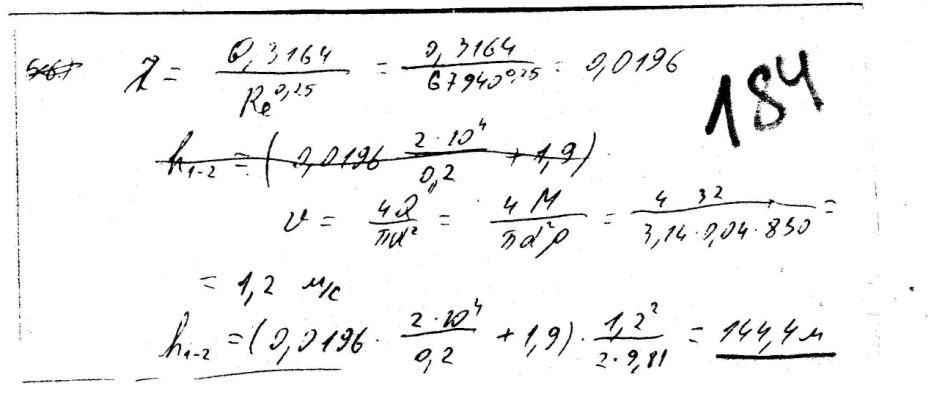 λ = 0,3164 / Re^0,25 = 0,3164 / 67940^0,25 = 0,0196
184
h₁₋₂ = ( 0,0196 2·10⁴ / 0,2 + 1,9)
v = 4Q / πd² = 4M / πd²ρ = 4 32 / 3,14·0,04·850 =
= 1,2 м/с
h₁₋₂ = (0,0196 · 2·10⁴ / 0,2 + 1,9) · 1,2² / 2·9,81 = 144,4 м